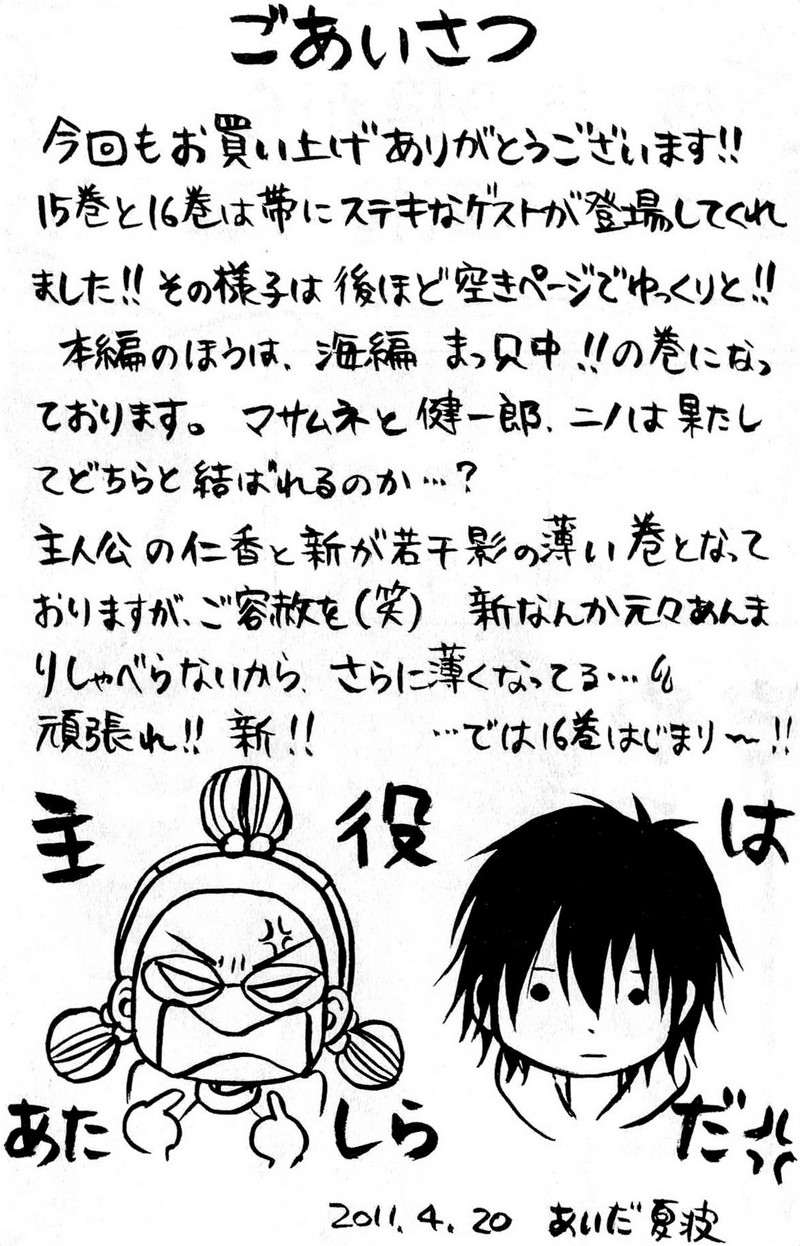 ごあいさつ
今回もお買い上げありがとうございます!!
15巻と16巻は帯にステキなゲストが登場してくれ
ました!!その様子は後ほど空きページでゆっくりと!!
本編のほうは、海編 まっ只中!!の巻になっ
ております。 マサムネと健一郎、ニノは果たし
てどちらと結ばれるのか…?
主人公の仁香と新が若干影の薄い巻となって
おりますが、ご容赦を(笑) 新なんか元々あんま
りしゃべらないから、さらに薄くなってる…
頑張れ!! 新!! …では16巻はじまり〜!!
主役は
あたしらだ
2011.4.20 あいだ夏波